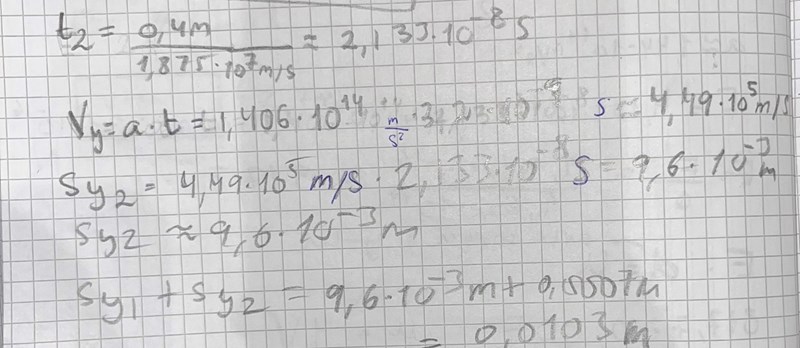 t₂ = 0,4m / 1,875·10⁷m/s = 2,133·10⁻⁸ s
Vy = a·t = 1,406·10¹⁴ m/s² · s = 4,49·10⁵ m/s
Sy₂ = 4,49·10⁵ m/s · 2,133·10⁻⁸ s = 9,6·10⁻³ m
Sy₂ ≈ 9,6·10⁻³ m
Sy₁ + Sy₂ = 9,6·10⁻³ m +
= 0,0103 m